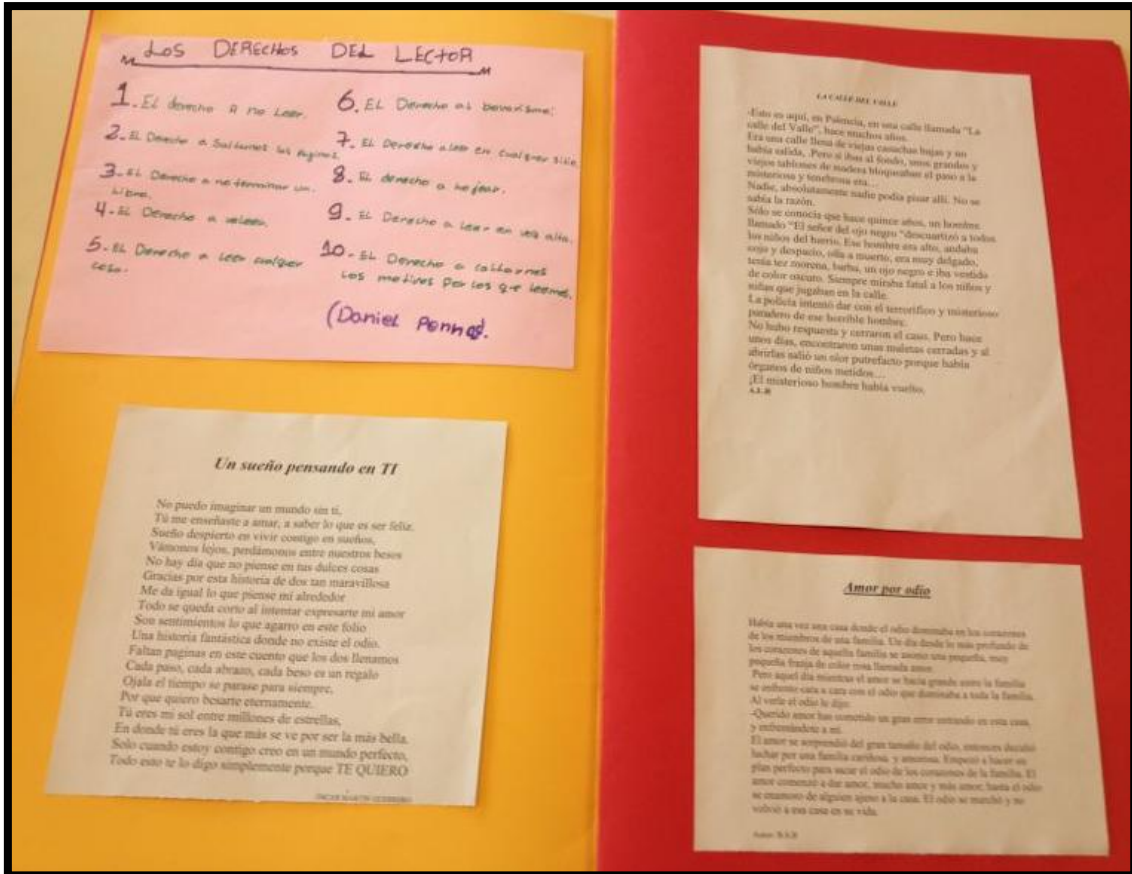 LOS DERECHOS DEL LECTOR
1. EL derecho A no Leer.
2. EL Derecho a Saltarnos las Paginas.
3. EL Derecho a no terminar un
Libro.
4. EL Derecho a releer.
5. EL Derecho a Leer cualquer
cosa.
6. EL Derecho al bovarismo.
7. EL Derecho a leer en cualquer sitio.
8. EL derecho a hojear.
9. EL Derecho a Leer en voz alta.
10. EL Derecho a callarnos
Los motivos por los q-e leemos.
(Daniel Pennac).
Un sueño pensando en TI
No puedo imaginar un mundo sin ti,
Tú me enseñaste a amar, a saber lo que es ser feliz.
Sueño despierto en vivir contigo en sueños,
Vámonos lejos, perdámonos entre nuestros besos
No hay día que no piense en tus dulces cosas
Gracias por esta historia de dos tan maravillosa
Me da igual lo que piense mi alrededor
Todo se queda corto al intentar expresarte mi amor
Son sentimientos lo que agarro en este folio
Una historia fantástica donde no existe el odio.
Faltan paginas en este cuento que los dos llenamos
Cada paso, cada abrazo, cada beso es un regalo
Ojala el tiempo se parase para siempre,
Por que quiero besarte eternamente.
Tú eres mi sol entre millones de estrellas,
En donde tú eres la que más se ve por ser la más bella.
Solo cuando estoy contigo creo en un mundo perfecto,
Todo esto te lo digo simplemente porque TE QUIERO
OSCAR MARTIN GUERRERO
LA CALLE DEL VALLE
-Esto es aquí, en Palencia, en una calle llamada "La
calle del Valle", hace muchos años.
Era una calle llena de viejas casuchas bajas y no
había salida, .Pero si ibas al fondo, unos grandes y
viejos tablones de madera bloqueaban el paso a la
misteriosa y tenebrosa era…
Nadie, absolutamente nadie podía pisar allí. No se
sabía la razón.
Sólo se conocía que hace quince años, un hombre
llamado "El señor del ojo negro "descuartizó a todos
los niños del barrio. Ese hombre era alto, andaba
cojo y despacio, olía a muerto, era muy delgado,
tenía tez morena, barba, un ojo negro e iba vestido
de color oscuro. Siempre miraba fatal a los niños y
niñas que jugaban en la calle.
La policía intentó dar con el terrorífico y misterioso
paradero de ese horrible hombre.
No hubo respuesta y cerraron el caso. Pero hace
unos días, encontraron unas maletas cerradas y al
abrirlas salió un olor putrefacto porque había
órganos de niños metidos…
¡El misterioso hombre había vuelto.
Amor por odio
Había una vez una casa donde el odio dominaba en los corazones
de los miembros de una familia. Un día desde lo más profundo de
los corazones de aquella familia se asomo una pequeña, muy
pequeña franja de color rosa llamada amor.
Pero aquel día mientras el amor se hacía grande entre la familia
se enfrento cara a cara con el odio que dominaba a toda la familia.
Al verle el odio le dijo:
-Querido amor has cometido un gran error entrando en esta casa,
y enfrentándote a mi.
El amor se sorprendió del gran tamaño del odio, entonces decidió
luchar por una familia cariñosa y amorosa. Empezó a hacer un
plan perfecto para sacar el odio de los corazones de la familia. El
amor comenzó a dar amor, mucho amor y más amor, hasta el odio
se enamoro de alguien ajeno a la casa. El odio se marchó y no
volvió a esa casa en su vida.
Autor: